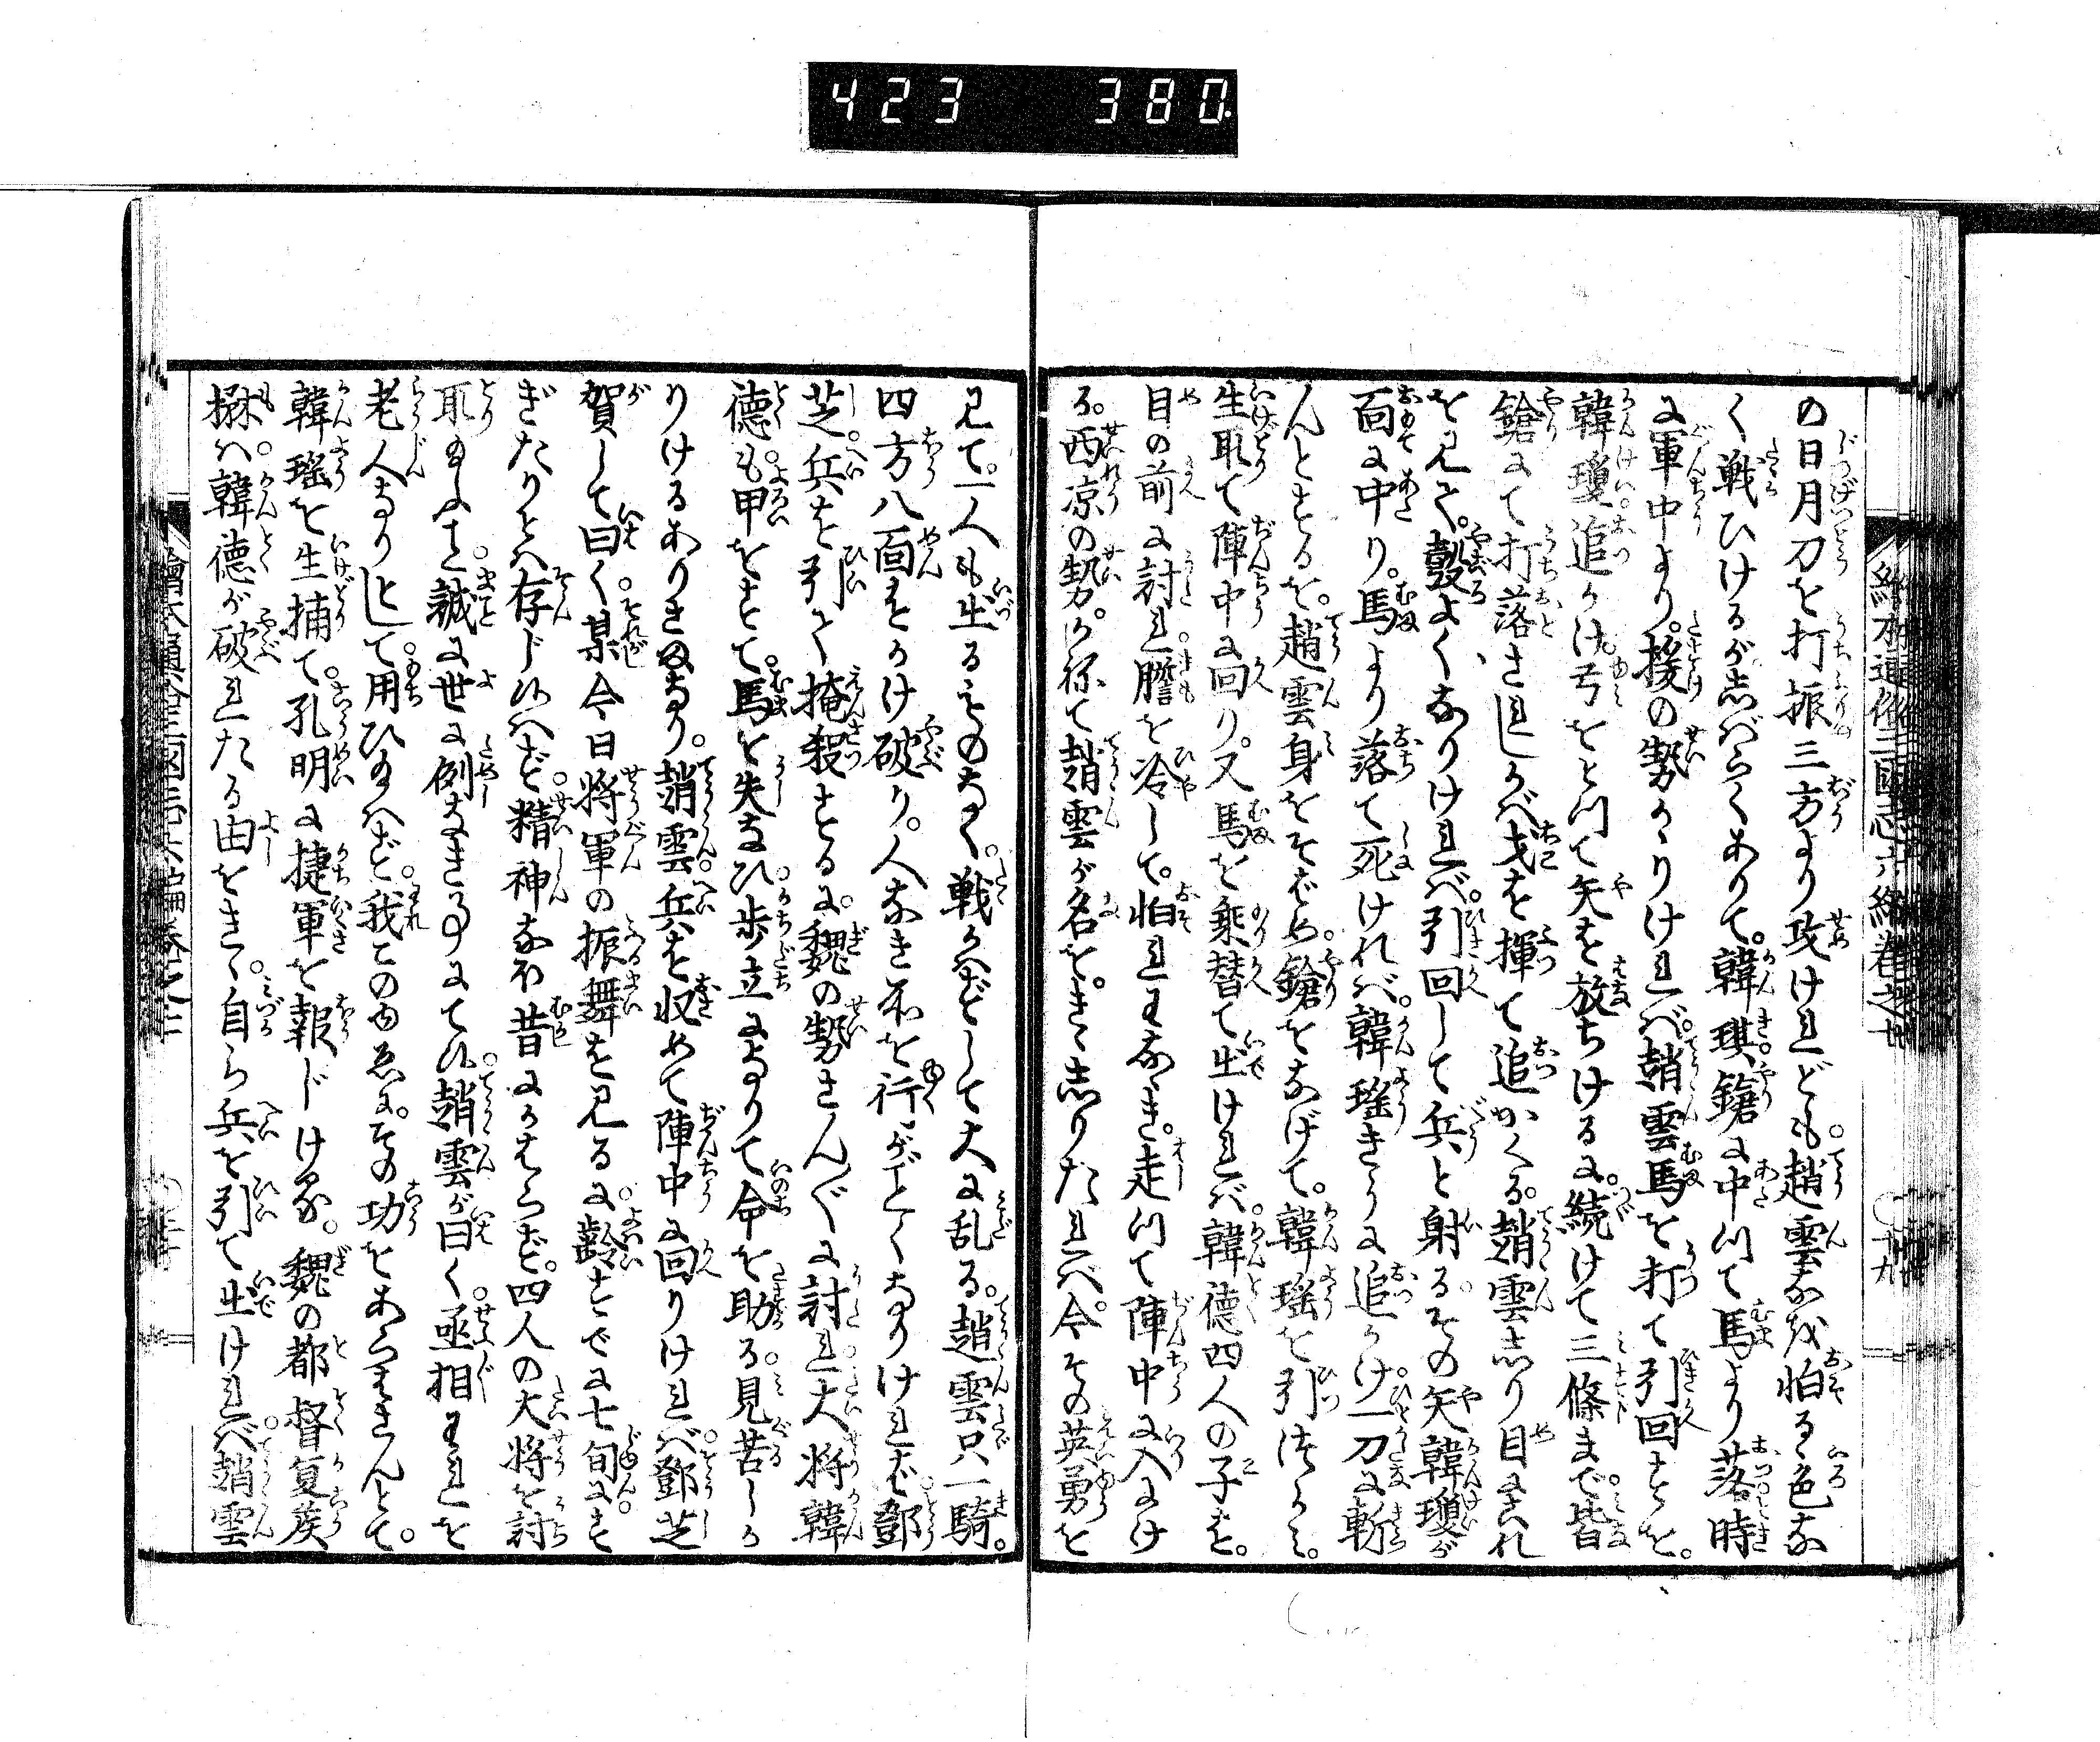 423 380
の日月刀を打振三方より攻けれども。趙雲なほ怕るゝ色な
く戦ひけるがしばらくありて。韓琪。鎗に中つて馬より落。時
に軍中より。援の勢かゝりければ。趙雲馬を打て引回すを。
韓瓊。追かけ。弓をとつて矢を放ちけるに。続けて三條まで。皆
鎗にて打落されしかば戈を揮て追かくる。趙雲しり目にこれ
を見て。彀よくなりければ。引回して兵と射る。その矢韓瓊が
面に中り。馬より落て死ければ。韓瑶きうに追かけ。一刀に斬
んとするを。趙雲身をそばめ。鎗をなげて。韓瑶を引つかみ。
生取て陣中に回り。又馬を乗替て出ければ。韓徳四人の子を。
目の前に討れ。膽を冷して。怕れわなゝき。走つて陣中に入にけ
る。西凉の勢。かねて趙雲が名を。きゝしりたれば。今その英勇を
見て。一人も出るものなく。戦かはずして大に乱る。趙雲只一騎。
四方八面をかけ破り。人なき所を行がごとくなりければ。鄧
芝。兵を引て掩殺するに。魏の勢さん〴〵に討れ。大将韓
徳も。甲をすて。馬を失なひ。歩立になりて命を助る。見苦しか
りけるありさまなり。趙雲。兵を収めて陣中に回りければ。鄧芝
賀して曰く。某今日将軍の振舞を見るに。齢すでに七旬にす
ぎたりとは存じ候はず。精神なほ昔にかはらず。四人の大将を討
取給ふこと。誠に世に例なき事にて候。趙雲が曰く。丞相われを
老人なりとして。用ひ給はず。我このゆゑに。その功をあらはさんとて。
韓瑶を生捕て。孔明に捷軍を報じける。魏の都督夏侯
楙は韓徳が破れたる由をきゝ。自ら兵を引て出ければ。趙雲